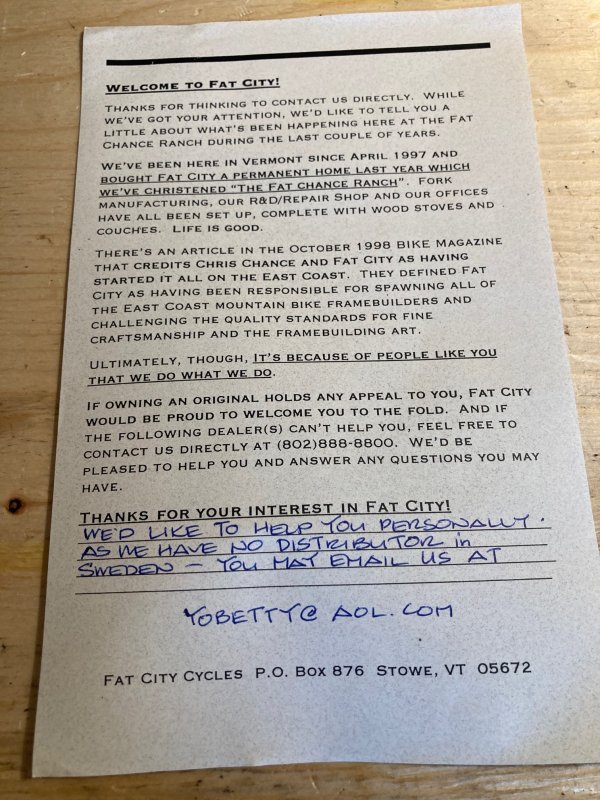 WELCOME TO FAT CITY!
THANKS FOR THINKING TO CONTACT US DIRECTLY. WHILE
WE'VE GOT YOUR ATTENTION, WE'D LIKE TO TELL YOU A
LITTLE ABOUT WHAT'S BEEN HAPPENING HERE AT THE FAT
CHANCE RANCH DURING THE LAST COUPLE OF YEARS.
WE'VE BEEN HERE IN VERMONT SINCE APRIL 1997 AND
BOUGHT FAT CITY A PERMANENT HOME LAST YEAR WHICH
WE'VE CHRISTENED "THE FAT CHANCE RANCH". FORK
MANUFACTURING, OUR R&D/REPAIR SHOP AND OUR OFFICES
HAVE ALL BEEN SET UP, COMPLETE WITH WOOD STOVES AND
COUCHES. LIFE IS GOOD.
THERE'S AN ARTICLE IN THE OCTOBER 1998 BIKE MAGAZINE
THAT CREDITS CHRIS CHANCE AND FAT CITY AS HAVING
STARTED IT ALL ON THE EAST COAST. THEY DEFINED FAT
CITY AS HAVING BEEN RESPONSIBLE FOR SPAWNING ALL OF
THE EAST COAST MOUNTAIN BIKE FRAMEBUILDERS AND
CHALLENGING THE QUALITY STANDARDS FOR FINE
CRAFTSMANSHIP AND THE FRAMEBUILDING ART.
ULTIMATELY, THOUGH, IT'S BECAUSE OF PEOPLE LIKE YOU
THAT WE DO WHAT WE DO.
IF OWNING AN ORIGINAL HOLDS ANY APPEAL TO YOU, FAT CITY
WOULD BE PROUD TO WELCOME YOU TO THE FOLD. AND IF
THE FOLLOWING DEALER(S) CAN'T HELP YOU, FEEL FREE TO
CONTACT US DIRECTLY AT (802)888-8800. WE'D BE
PLEASED TO HELP YOU AND ANSWER ANY QUESTIONS YOU MAY
HAVE.
THANKS FOR YOUR INTEREST IN FAT CITY!
WE'D LIKE TO HELP YOU PERSONALLY.
AS WE HAVE NO DISTRIBUTOR in
SWEDEN – YOU MAY EMAIL US AT
YOBETTY@AOL.COM
FAT CITY CYCLES P.O. BOX 876 STOWE, VT 05672